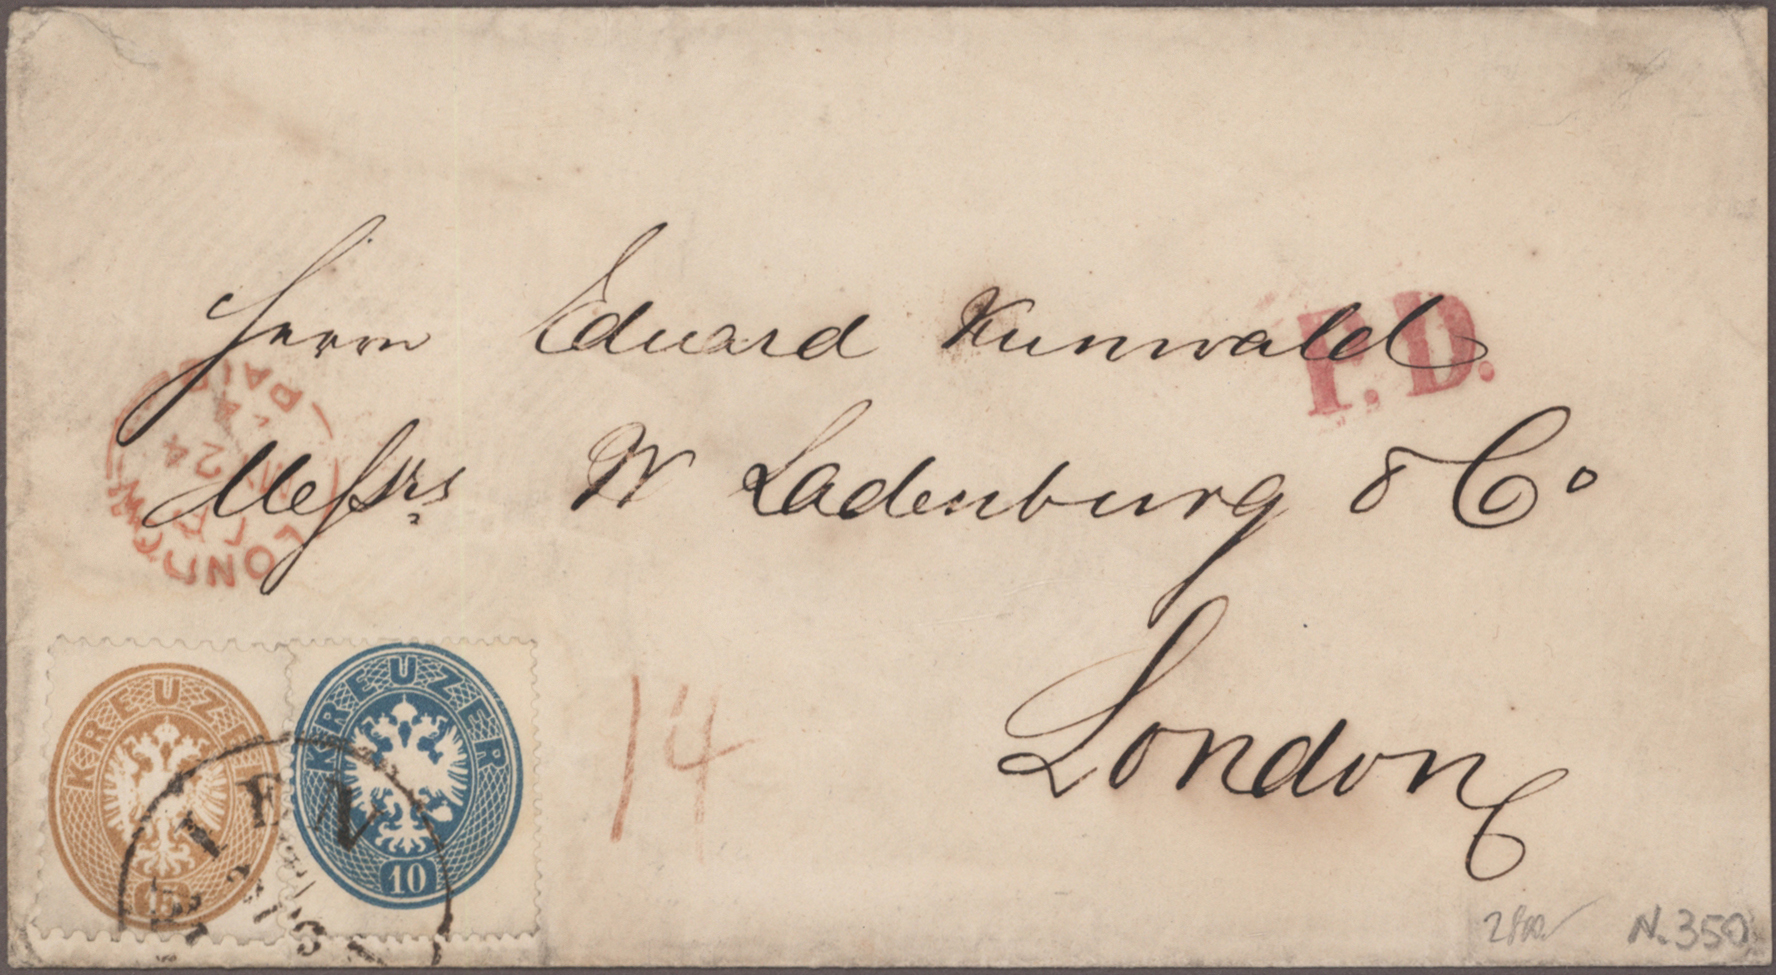 Herrn Eduard Kunwald
P.D.
Messrs W Ladenburg & Co
London
LONDON
PAID
24
14
KREUZER
15
KREUZER
10
WIEN
2800
N. 350